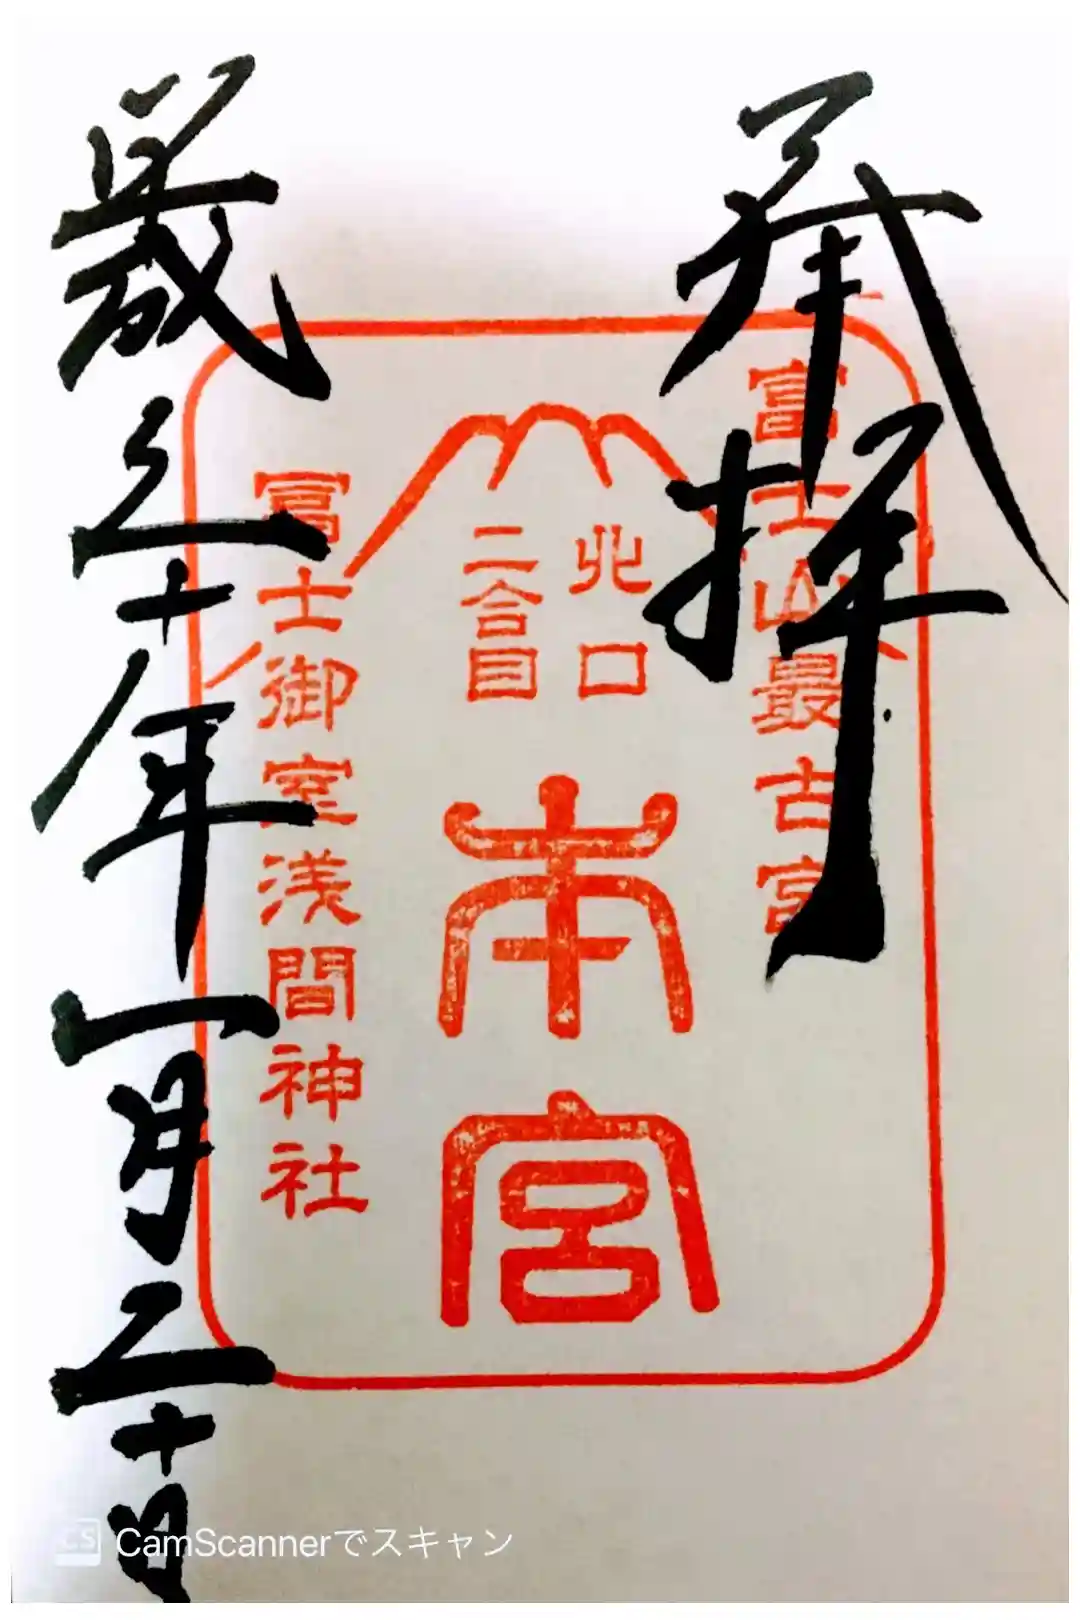 奉拝
富士山最古宮
北口
二合目
本宮
冨士御室浅間神社
平成三十年一月二十日
CamScannerでスキャン